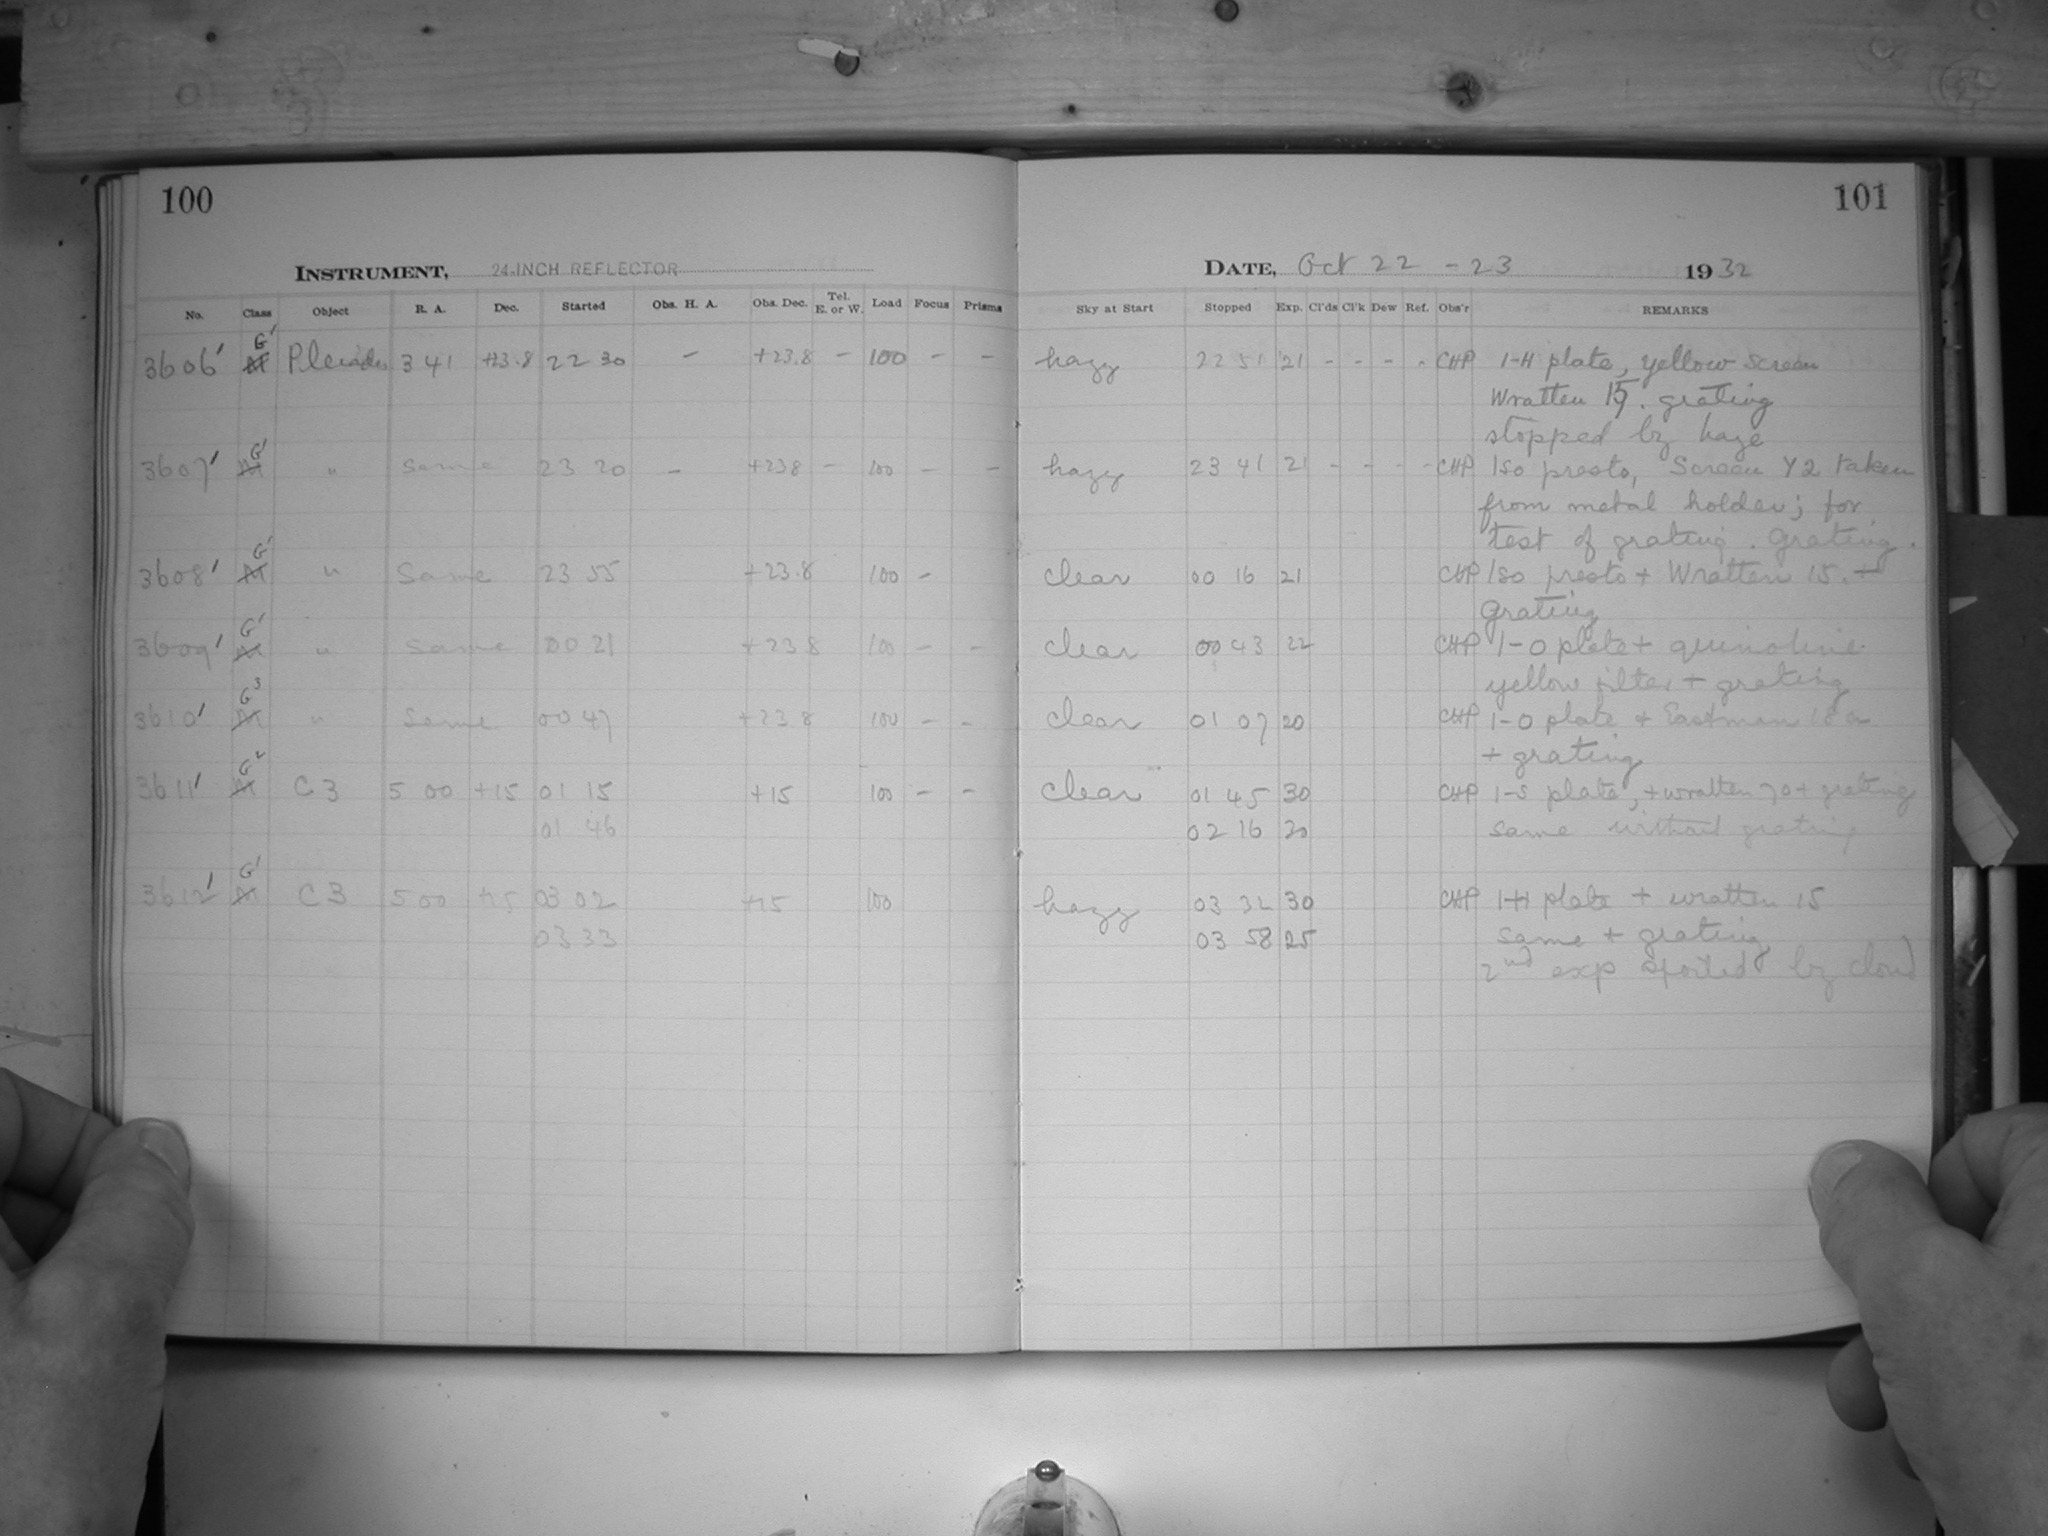 100
INSTRUMENT, 24-INCH REFLECTOR
No. Class Object R. A. Dec. Started Obs. H. A. Obs. Dec. Tel. E. or W. Load Focus Prisms
3606' G' M Pleiades 3 41 +23.8 22 30 - +23.8 - 100 - -
3607' G' M " Same 23 20 - +23.8 - 100 - -
3608' G' M " Same 23 55 +23.8 100 -
3609' G' M " Same 00 21 +23.8 100 - -
3610' G3 M " Same 00 47 +23.8 100 - -
3611' G2 M C3 5 00 +15 01 15 +15 100 - -
01 46
3612' G' M C3 5 00 +15 03 02 +15 100
03 33
101
DATE, Oct 22 - 23 1932
Sky at Start Stopped Exp. Cl'ds Cl'k Dew Ref. Obs'r REMARKS
hazy 22 51 21 - - - - CHP 1-H plate, yellow screen
Wratten 15. grating
stopped by haze
hazy 23 41 21 - - - - CHP Iso presto, Screen Y2 taken
from metal holder; for
test of grating. Grating.
clear 00 16 21 CHP Iso presto + Wratten 15. +
Grating
clear 00 43 22 CHP 1-O plate + quinoline
yellow filter + grating
clear 01 07 20 CHP 1-O plate + Eastman 18a
+ grating
clear 01 45 30 CHP 1-S plate, + wratten 70 + grating
02 16 20 same without grating
hazy 03 32 30 CHP 1-H plate + wratten 15
03 58 25 same + grating
2nd exp spoiled by cloud